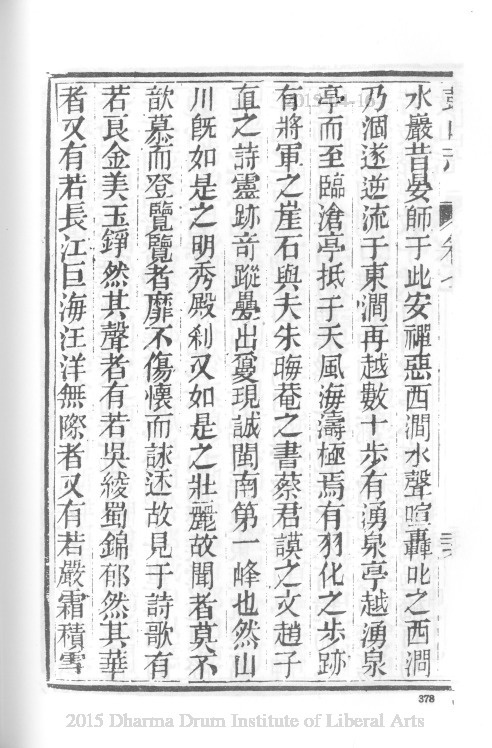 水巖昔晏師于此安禪惡西澗水聲喧轟叱之西澗
乃涸遂逆流于東澗再越數十步有湧泉亭越湧泉
亭而至臨滄亭抵于天風海濤極焉有羽化之步跡
有將軍之崖石與夫朱晦菴之書蔡君謨之文趙子
直之詩靈跡竒蹤疊出叠現誠閩南第一峰也然山
川旣如是之明秀殿刹又如是之壯麗故聞者莫不
歆慕而登覽覽者靡不傷懷而詠述故見于詩歌有
若良金美玉錚然其聲者有若吳綾蜀錦郁然其華
者又有若長江巨海汪洋無際者又有若嚴霜積雪
378
2015 Dharma Drum Institute of Liberal Arts